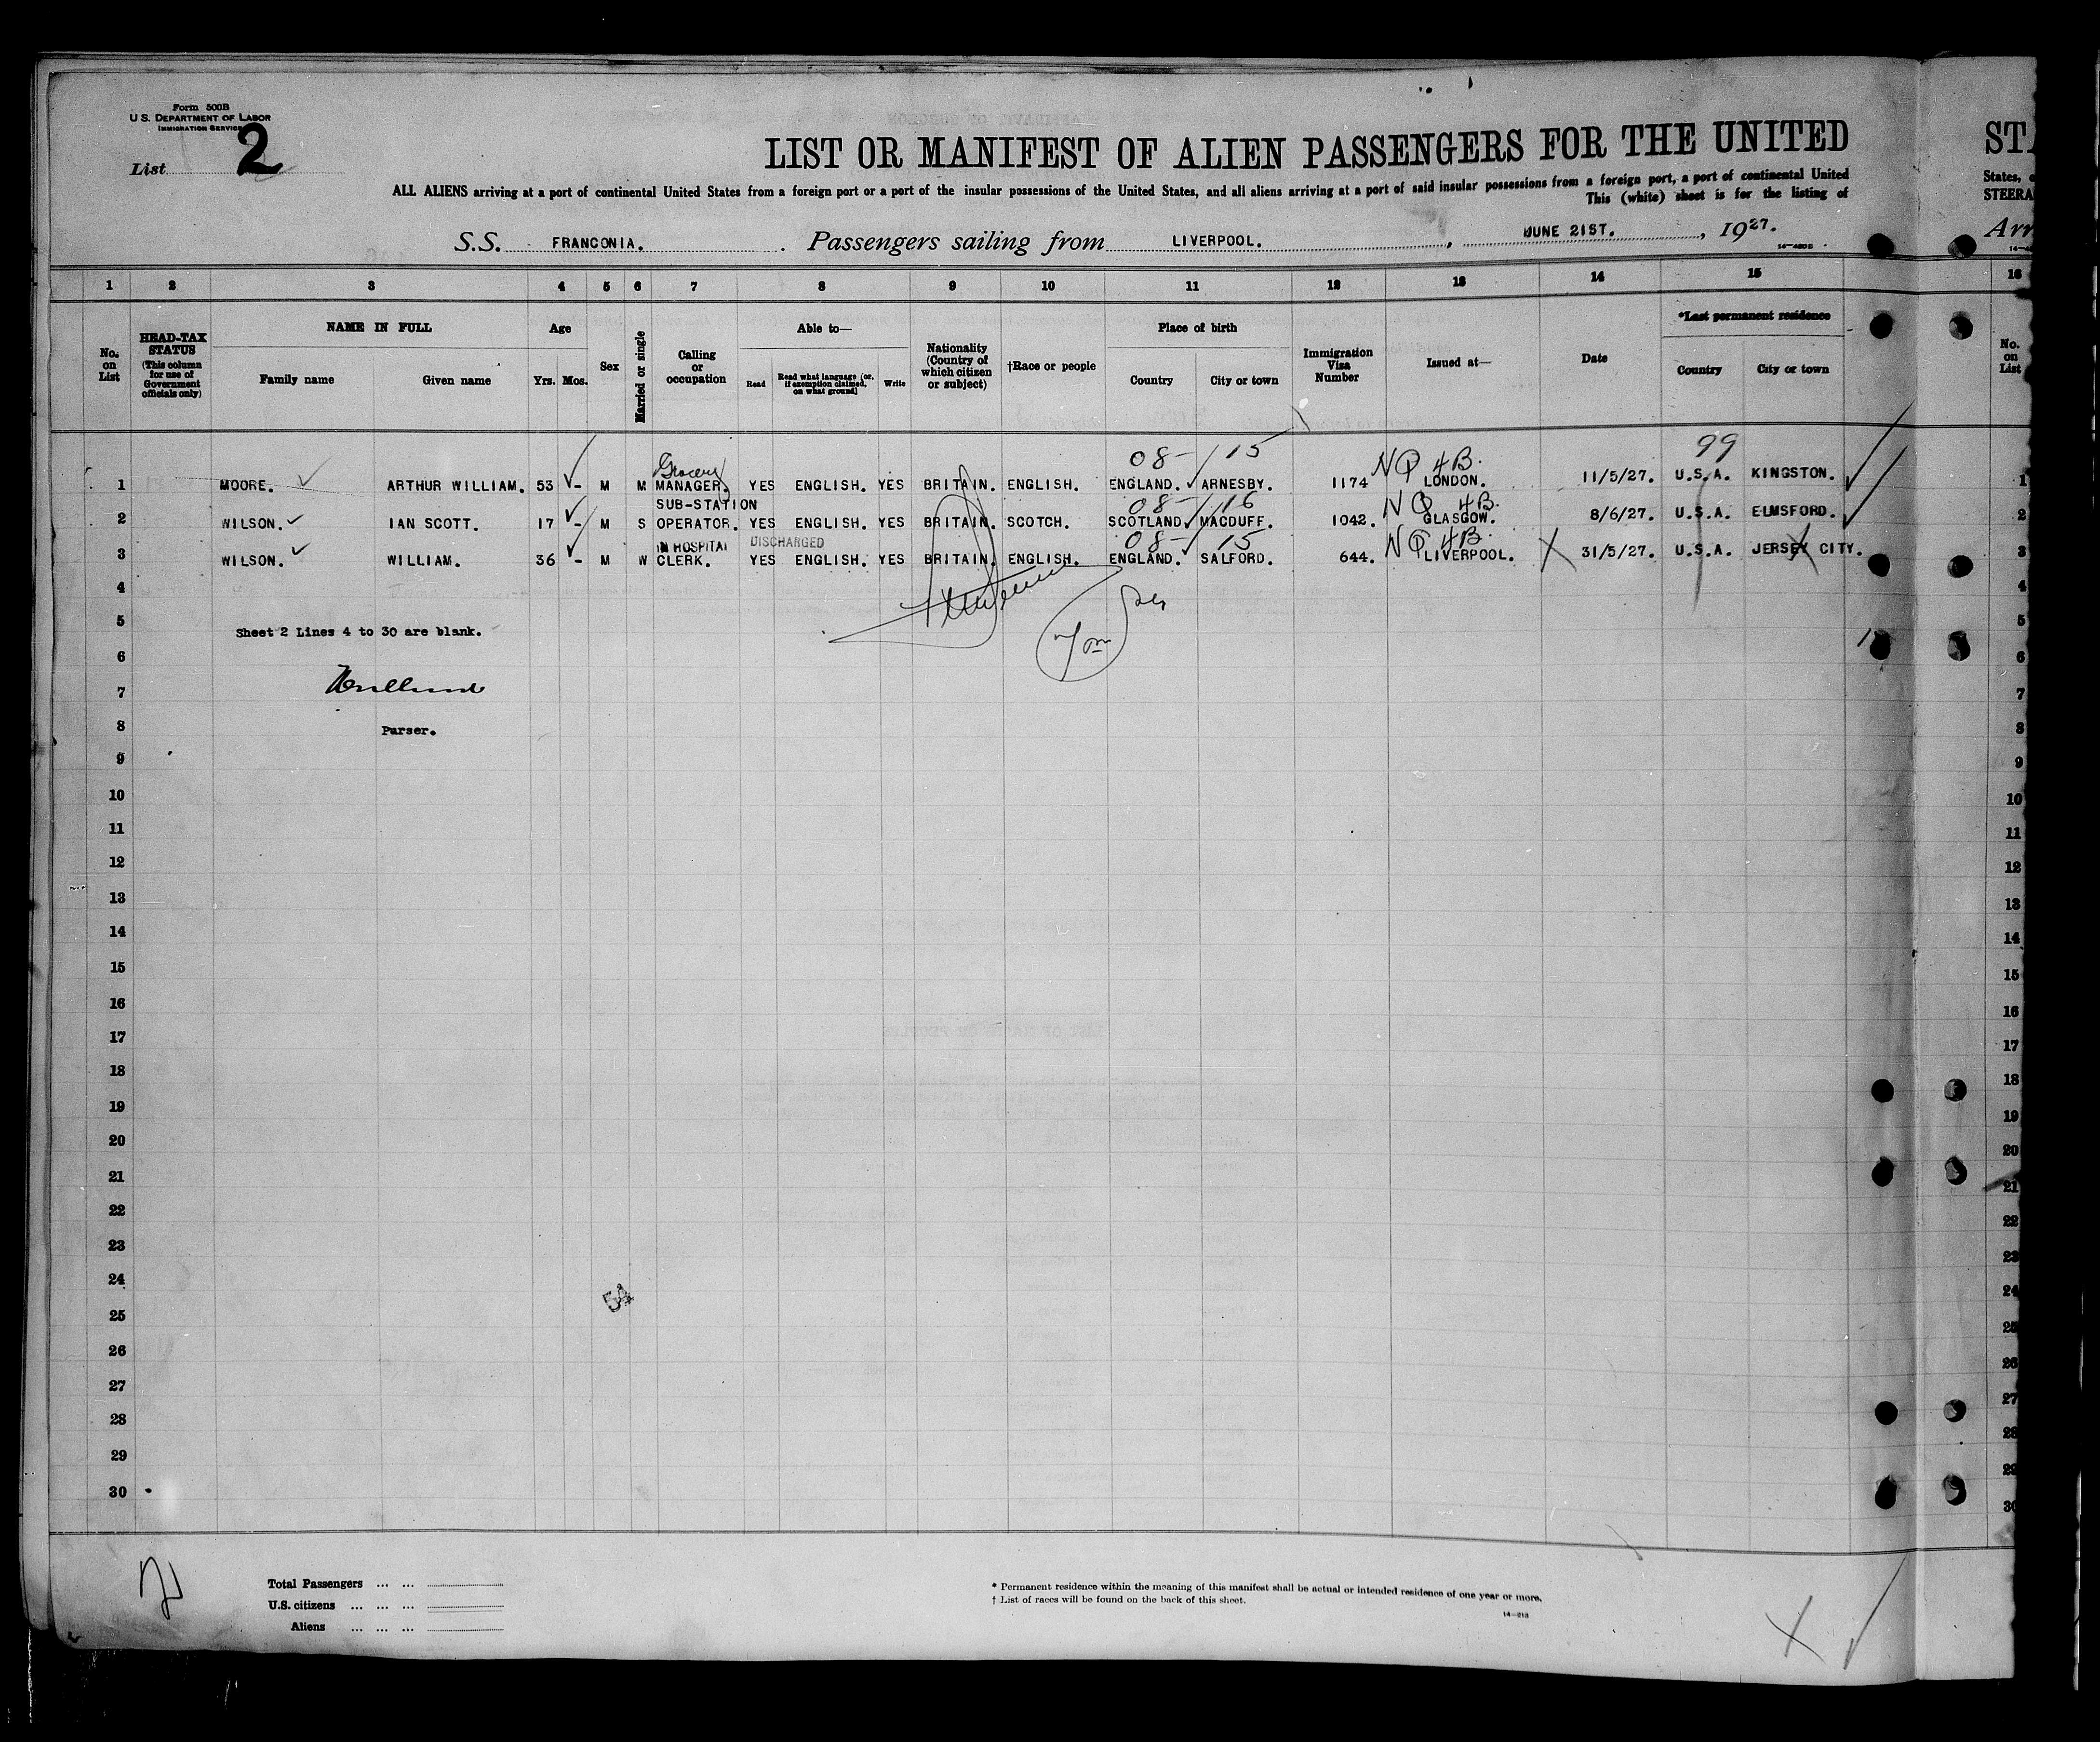 Form 500B
U. S. DEPARTMENT OF LABOR
IMMIGRATION SERVICE
List 2
LIST OR MANIFEST OF ALIEN PASSENGERS FOR THE UNITED
ALL ALIENS arriving at a port of continental United States from a foreign port or a port of the insular possessions of the United States, and all aliens arriving at a port of said insular possessions from a foreign port, a port of continental United
This (white) sheet is for the listing of
S.S. FRANCONIA. Passengers sailing from LIVERPOOL. , JUNE 21ST. , 1927.
STA
States, o
STEERA
Arr
1 2 3 4 5 6 7 8 9 10 11 12 13 14 15 16
No. on List
HEAD-TAX STATUS (This column for use of Government officials only)
NAME IN FULL
Family name Given name
Age
Yrs. Mos.
Sex
Married or single
Calling or occupation
Able to—
Read Read what language (or, if exemption claimed, on what ground) Write
Nationality (Country of which citizen or subject)
†Race or people
Place of birth
Country City or town
Immigration Visa Number
Issued at—
Date
*Last permanent residence
Country City or town
No. on List
Grocery 08- 15 NQ 4B. 99
1 MOORE. ARTHUR WILLIAM. 53 - M M MANAGER. YES ENGLISH. YES BRITAIN. ENGLISH. ENGLAND. ARNESBY. 1174 LONDON. 11/5/27. U.S.A. KINGSTON. 1
SUB-STATION 08- 16 NQ 4B.
2 WILSON. IAN SCOTT. 17 - M S OPERATOR. YES ENGLISH. YES BRITAIN. SCOTCH. SCOTLAND. MACDUFF. 1042. GLASGOW. 8/6/27. U.S.A. ELMSFORD. 2
IN HOSPITAL DISCHARGED 08- 15 NQ 4B.
3 WILSON. WILLIAM. 36 - M W CLERK. YES ENGLISH. YES BRITAIN. ENGLISH. ENGLAND. SALFORD. 644. LIVERPOOL. 31/5/27. U.S.A. JERSEY CITY. 3
4 4
5 5
Sheet 2 Lines 4 to 30 are blank.
6 6
7 7
8 8
Purser.
9 9
10 10
11 11
12 12
13 13
14 14
15 15
16 16
17 17
18 18
19 19
20 20
21 21
22 22
23 23
24 24
25 25
26 26
27 27
28 28
29 29
30 30
2
Total Passengers ... ...
U.S. citizens ... ... ...
Aliens ... ... ...
* Permanent residence within the meaning of this manifest shall be actual or intended residence of one year or more.
† List of races will be found on the back of this sheet.
14—213